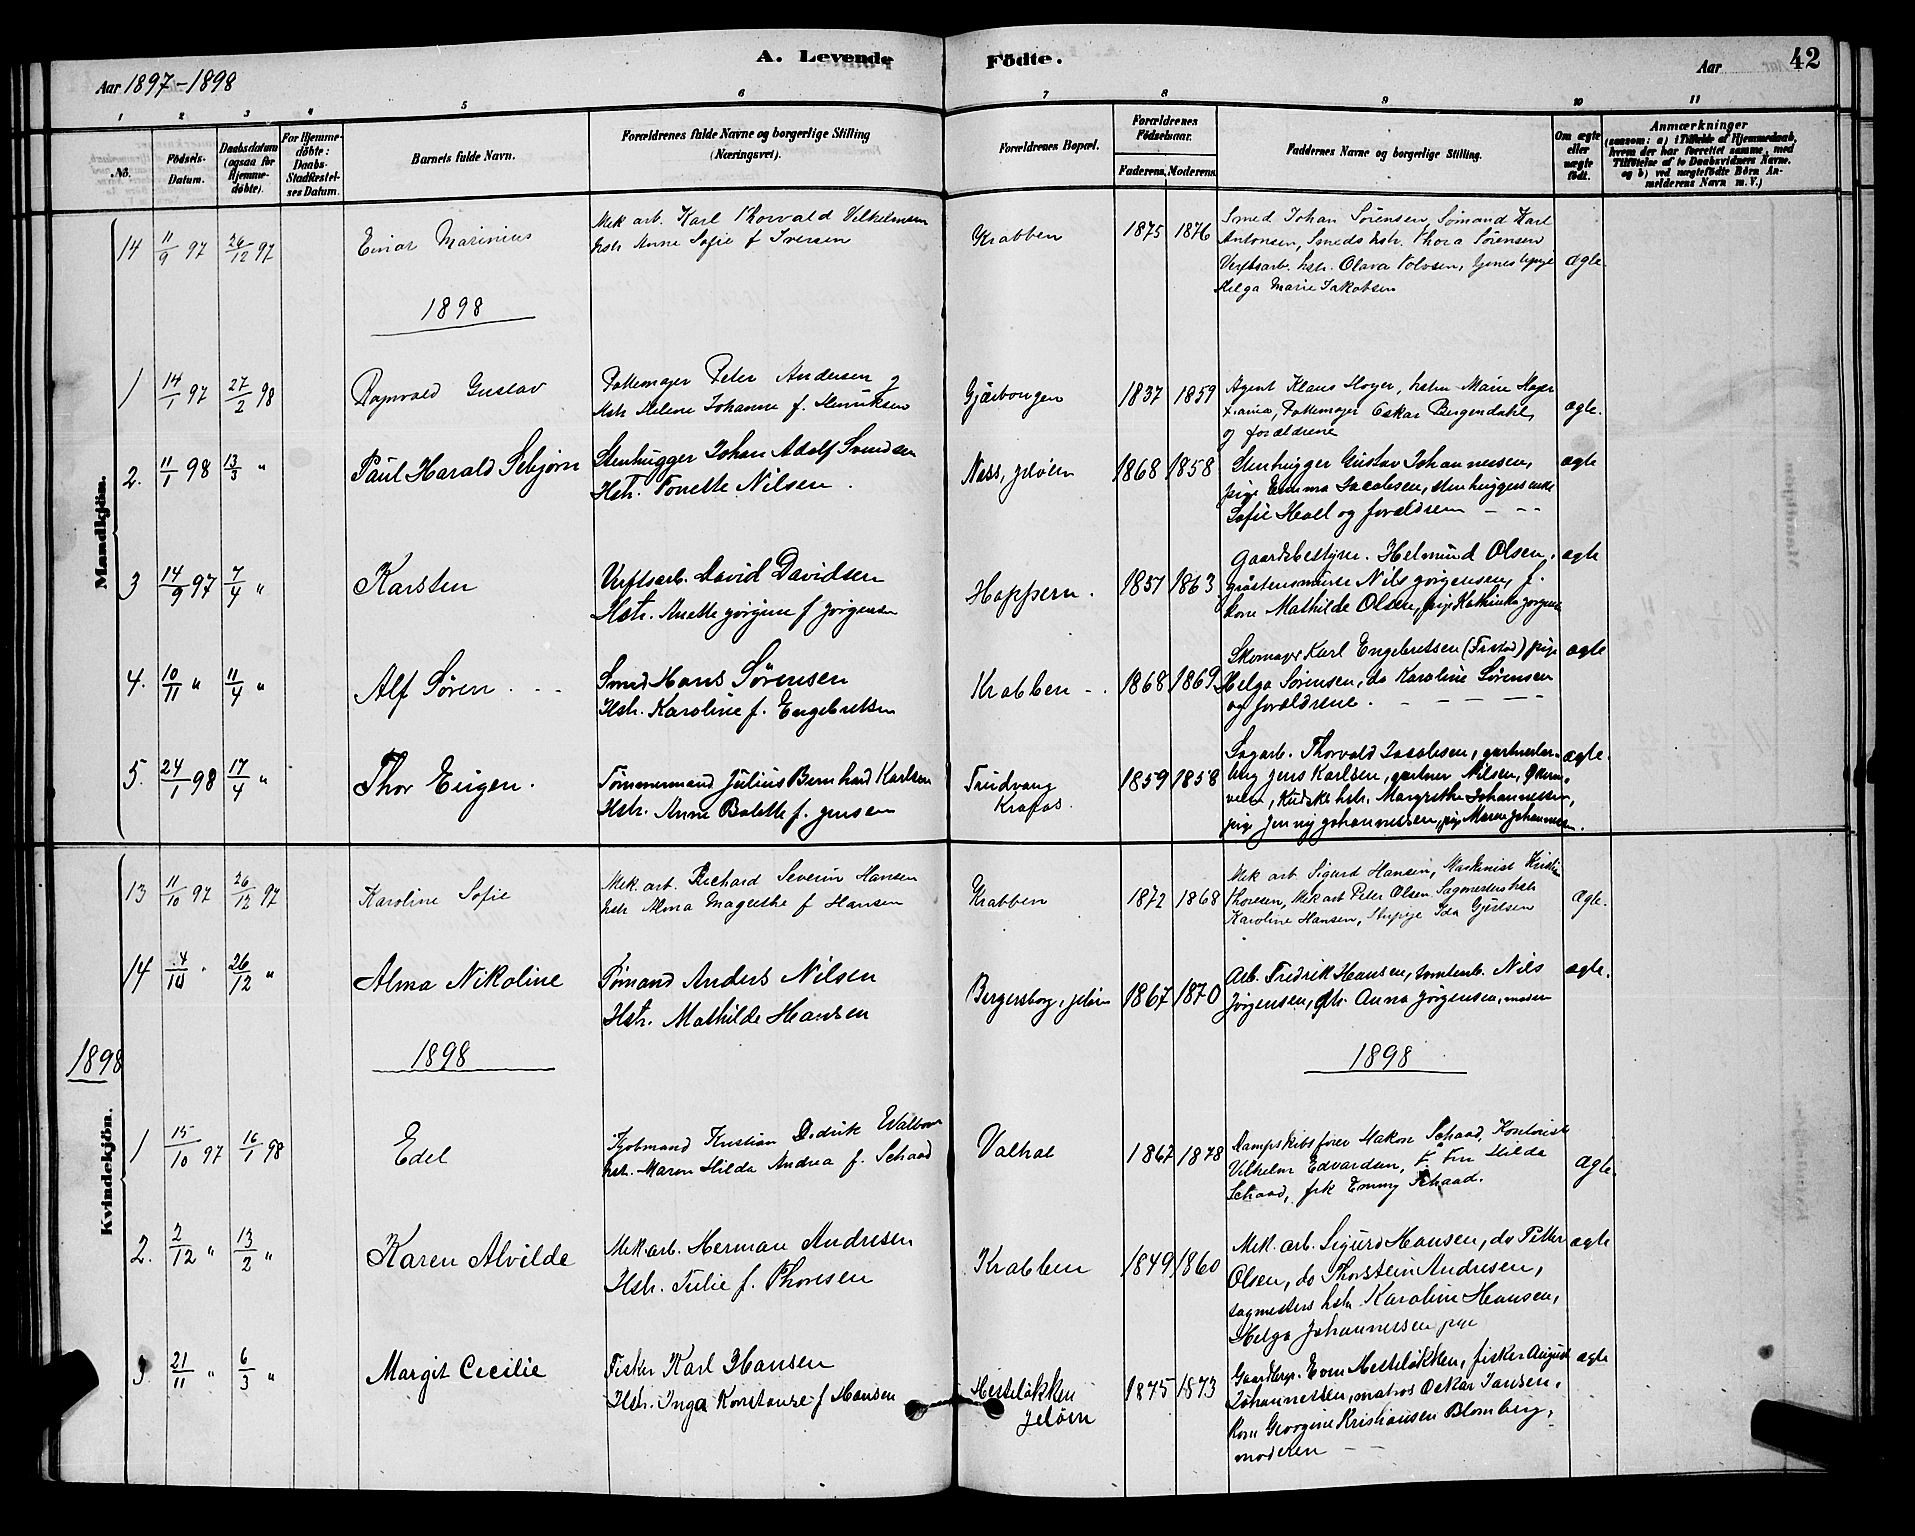 A. Levende Fødte.
Aar 1897-1898
Aar 42
1 2 3 4 5 6 7 8 9 10 11
No.
Fødsels-Datum.
Daabsdatum (ogsaa for Hjemmedøbte).
For Hjemmedøbte: Daabs-Stadfæstelses Datum.
Barnets fulde Navn.
Forældrenes fulde Navne og borgerlige Stilling (Næringsvei).
Forældrenes Bopæl.
Forældrenes Fødselsaar.
Faderens. Moderens.
Faddernes Navne og borgerlige Stilling.
Om ægte eller uægte født.
Anmærkninger
(saasom: a) i Tilfælde af Hjemmedaab, hvem der har forrettet samme, med Tilføielse af to Daabsvidners Navne. og b) ved uægtefødte Børn Anmelderens Navn m. V.)
Mandkjøn.
14 11/9 97 26/12 97 Einar Marinius
Mek arb. Karl Thorvald Vilhelmsen
hstr Anne Sofie f Iversen
Krabben 1875 1876
Smed Johan Sørensen, Sømand Karl
Antonsen, Smeds hstr. Thora Sørensen
Verftsarb. hstr. Olava
Helga Marie Jakobsen
ægte.
1898
1 14/1 97 27/2 98 Ragnvald Gustav
Pottemager Peter Andersen og
Hstr Helene Johanne f. Henriksen
1837 1859
Agent Klaus Hoyer, hstru Marie Hoyer
Pottemager Oskar Bergendahl,
og forældrene
ægte.
2. 11/1 98 13/3 " Paul Harald Sebjørn
Stenhugger Johan Adolf Svendsen
Hstr. Tonette Nilsen.
Næss, Jeløen 1868 1858
Stenhugger Gustav Johannessen,
pige Emma Jacobsen, stenhuggerenke
Sofie Hoel og forældrene
ægte
3 14/9 97 7/4 " Karsten
Verftsarb. David Davidsen
Hstr. Anette Jørgine f Jørgensen
Hoppern. 1857 1863
Gaardsbestyrer. Helmund Olsen,
Nils Jørgensen, f.
kone Mathilde Olsen, pige Kathinka Jørgens
ægte
4. 10/11 " 11/4 " Alf Søren
Smed Hans Sørensen
Hstr. Karoline f. Engebretsen
Krabben 1868 1869
Skomager Karl Engebretsen (Frstad) pige
Helga Sørensen, do Karoline Sørensen
og forældrene.
ægte
5. 24/1 98 17/4 " Thor Eugen.
Tømmermand Julius Bernhard Karlsen
Hstr. Anne Bolette f. Jensen
Trudvang
Krafos. 1859 1858
Sagarb. Thorvald Jacobsen, gartnerlær-
ling Jens Karlsen, gartner Nilsen,
Kudsks hstr. Margrethe Johannessen,
pige Jenny Johannessen, pige Maren Johannessen.
ægte.
13 11/10 97 26/12 97 Karoline Sofie
Mek. arb. Richard Severin Hansen
hstr Alma Magrethe f Hansen
Krabben 1872 1868
Mek arb Sigurd Hansen, Maskinist Kristian
Thoresen, Mek arb Peter Olsen Sagmesters hstr
Karoline Hansen, Ida
ægte.
14 4/10 " 26/12 " Alma Nikoline
Sømand Anders Nilsen
Hstr. Mathilde Hansen
Bergersborg, Jeløen 1867 1870
Arb. Fredrik Hansen, Nils
Jørgensen, Anna Jørgensen, moderen
ægte.
1898
1898
1898
Kvindekjøn.
1 15/10 97 16/1 98 Edel
Kjøbmand Kristian Didrik
hstr. Maren Hilda Andrea f. Schaad
Valhal 1867 1878
Dampskibsfører Hakon Schaad, Kontorist
Vilhelm Edvardsen, Fru Hilda
Schaad, frk Emmy Schaad.
ægte.
2. 2/12 " 13/2 " Karen Alvilde
Mek. arb. Herman Andresen
Hstr. Julie f. Thoresen
Krabben 1849 1860
Mek. arb. Sigurd Hansen, do Petter
Olsen, do Thorstein Andresen,
sagmesters hstr Karoline Hansen,
Helga Johannessen pige
ægte
3. 21/11 " 6/3 " Margit Cecilie
Fisker Karl Hansen
Hstr. Inga Konstanze f Hansen
Hesteløkken
Jeløen 1875 1873
Gaardbrgr. Even Hesteløkken, fisker August
Johannessen, matros Oskar Jansen,
Kone Georgene Kristiansen Blomberg,
moderen
ægte